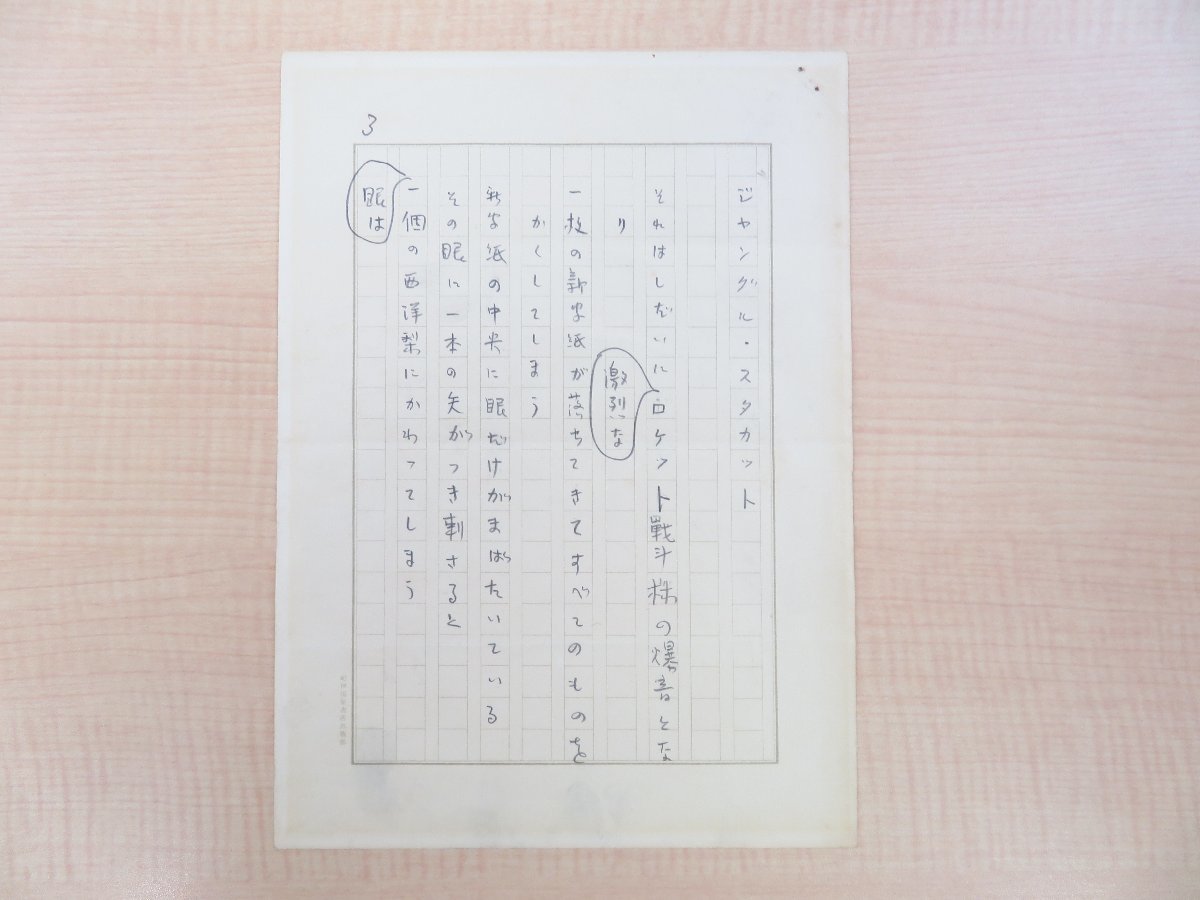 3
ジャングル・スタカット
それはしだいにロケット戰斗機の爆音とな
り
激烈な
一枚の新聞紙が落ちてきてすべてのものを
かくしてしまう
新聞紙の中央に眼だけがまばたいている
その眼に一本の矢がつき刺さると
一個の西洋梨にかわってしまう
眼は